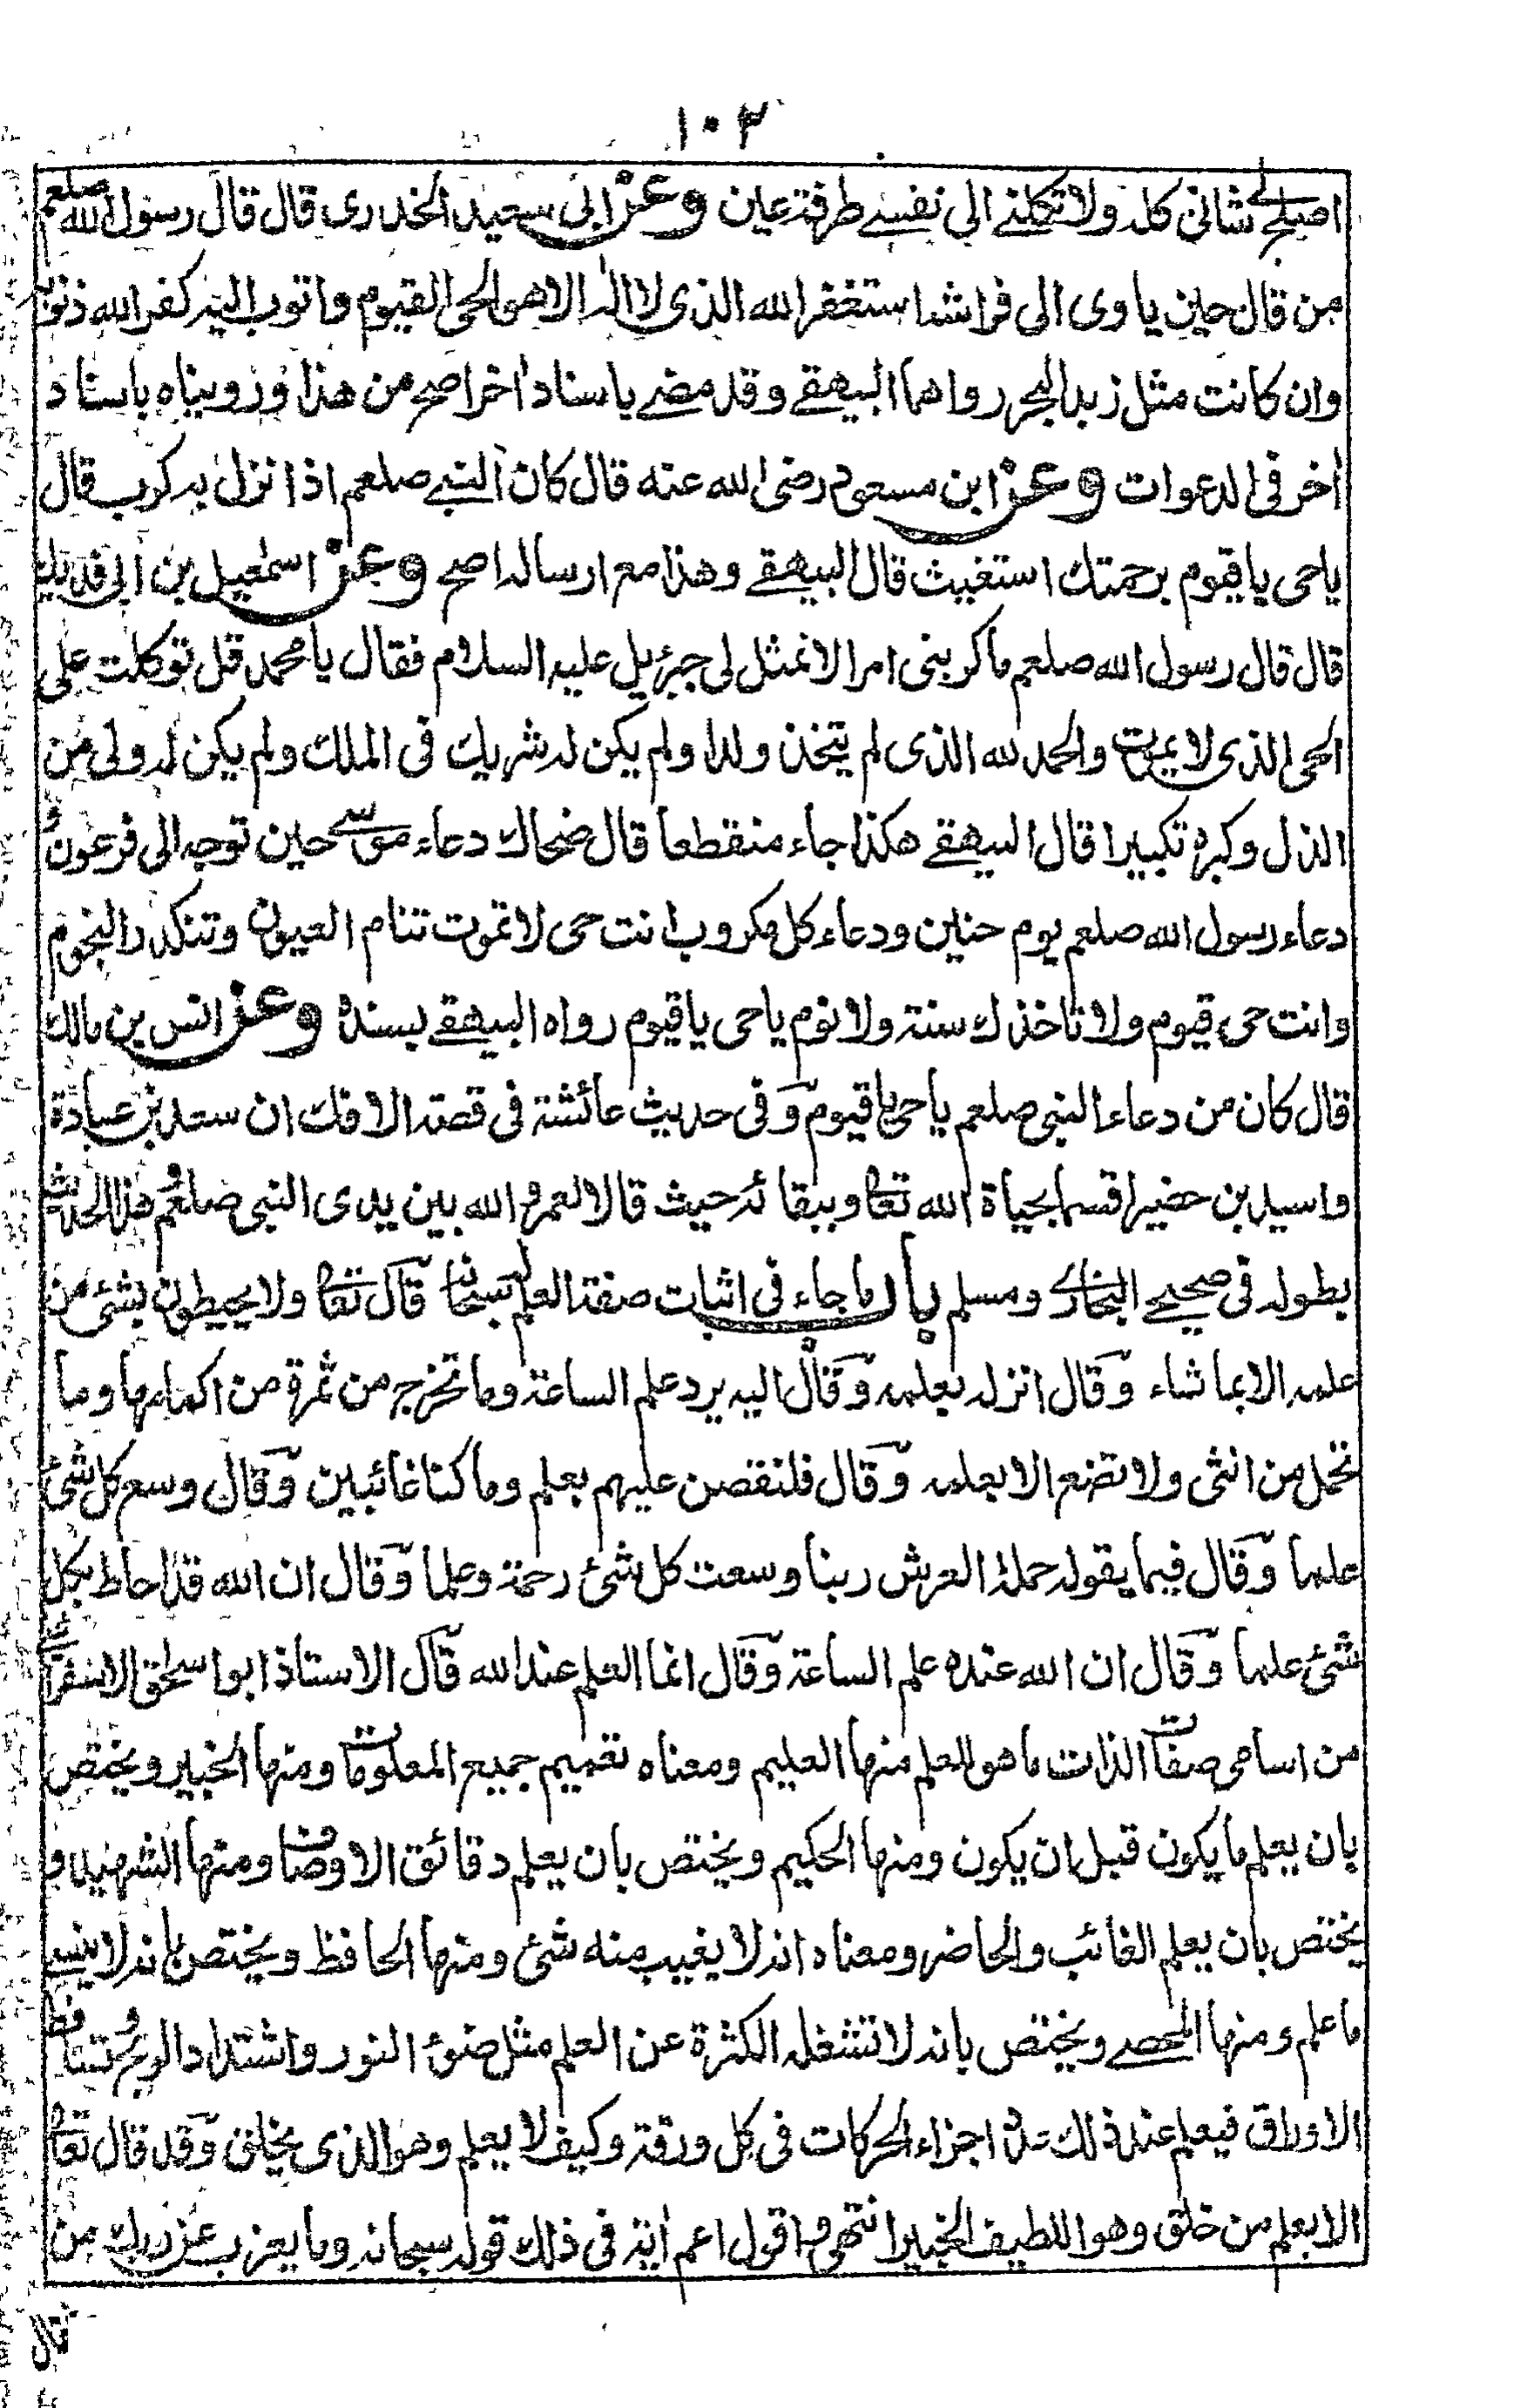 ١٠٣
اصلح شانی کله ولا تکلنے الی نفسے طرفة عین وعن ابی سعید الخدری قال قال رسول الله صلعم
من قال حین یاوی الی فراشه استغفر الله الذی لا اله الا هو الحی القیوم واتوب الیه کفر الله ذنوبه
وان کانت مثل زبد البحر رواهما البیهقے وقد مضے باسناد اخر اصح من هذا ورویناه باسناد
اخر فی الدعوات وعن ابن مسعود رضی الله عنه قال کان النبے صلعم اذا نزل به کرب قال
یاحی یا قیوم برحمتك استغیث قال البیهقے وهذا مع ارساله اصح وعن اسمعیل بن ابی فدیك
قال قال رسول الله صلعم ما کربنی امر الا تمثل لی جبرئیل علیه السلام فقال یا محمد قل توکلت علی
الحی الذی لا یموت والحمد لله الذی لم یتخذ ولدا ولم یکن له شریك فی الملك ولم یکن له ولی من
الذل وکبره تکبیرا قال البیهقے هکذا جاء منقطعا قال ضحاك دعاء موسے حین توجه الی فرعون و
دعاء رسول الله صلعم یوم حنین ودعاء کل مکروب انت حی لا تموت تنام العیون وتنکدر النجوم
وانت حی قیوم ولا تاخذك سنة ولا نوم یاحی یا قیوم رواه البیهقے بسنده وعن انس بن مالك
قال کان من دعاء النبی صلعم یاحی یا قیوم وفی حدیث عائشة فی قصة الافك ان سعد بن عبادة
واسید بن حضیر اقسما بحیاة الله تعا وببقائه حیث قالا لعمر الله بین یدی النبی صلعم وهذا الحدیث
بطوله فی صحیح البخاری ومسلم باب ما جاء فی اثبات صفة العلم له سبحانه قال تعا ولا یحیطون بشئ من
علمه الا بما شاء وقال انزله بعلمه وقال الیه یرد علم الساعة وما تخرج من ثمرة من اکمامها وما
تحمل من انثی ولا تضع الا بعلمه وقال فلنقصن علیهم بعلم وما کنا غائبین وقال وسع کل شئ
علما وقال فیما یقوله حملة العرش ربنا وسعت کل شئ رحمة وعلما وقال ان الله قد احاط بکل
شئ علما وقال ان الله عنده علم الساعة وقال انما العلم عند الله قال الاستاذ ابو اسحق الاسفرائنی
من اسامی صفات الذات ما هو العلم منها العلیم ومعناه تعمیم جمیع المعلومات ومنها الخبیر ویختص
بان یعلم ما یکون قبل ان یکون ومنها الحکیم ویختص بان یعلم دقائق الاوصاف ومنها الشهید و
یختص بان یعلم الغائب والحاضر ومعناه انه لا یغیب منه شئ ومنها الحافظ ویختص بانه لا ینسے
ما علم ومنها المحصے ویختص بانه لا تشغله الکثرة عن العلم مثل ضوئ النور واشتداد الریح وتساقط
الاوراق فیعلم عند ذلك عدد اجزاء الحرکات فی کل ورقة وکیف لا یعلم وهو الذی یخلق وقد قال تعا
الا یعلم من خلق وهو اللطیف الخبیر انتهی واقول اعم ایة فی ذلك قوله سبحانه وما یعزب عن ربك من